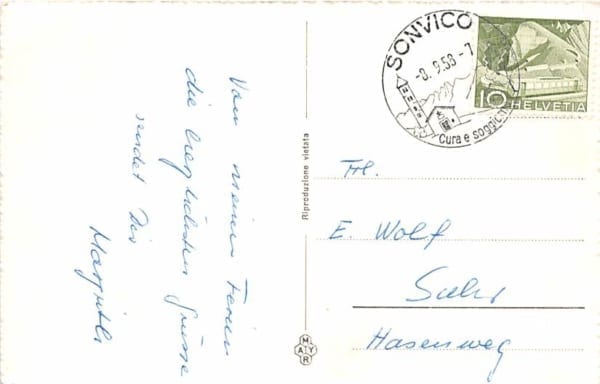 Von meinen Ferien
die herzlichsten Grüsse
sendet Dir
Margritli
Riproduzione vietata
MAYR
SONVICO
-8.9.58-7
Cura e soggior
10 HELVETIA
Frl.
E. Wolf
Suhr
Hasenweg